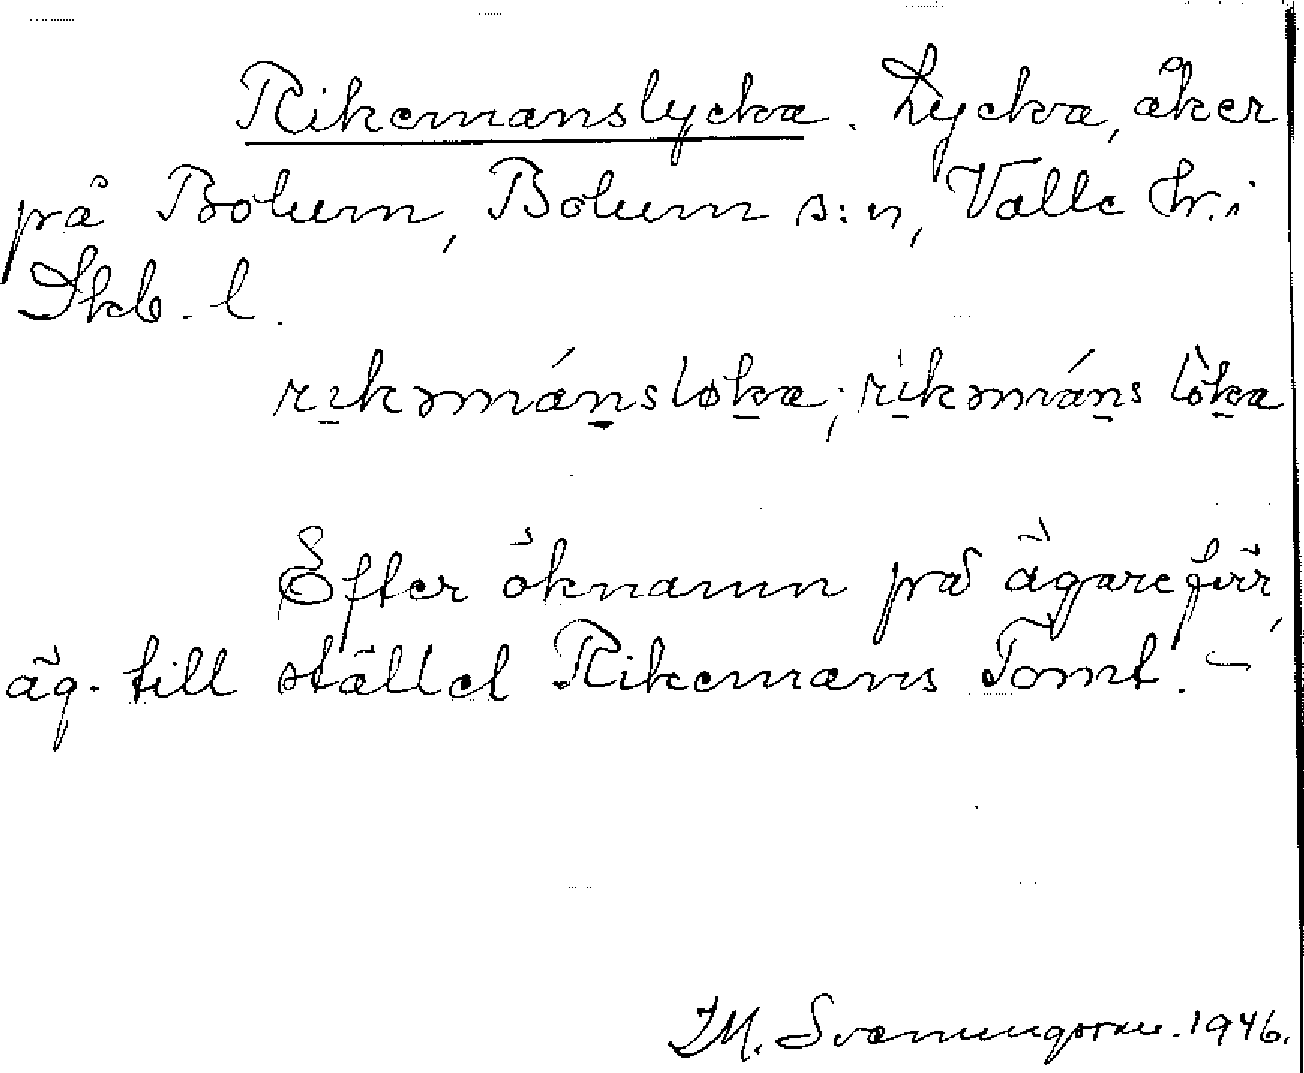 Rikemanslycka. Lycka, åker
på Bolum, Bolum s:n, Valle hr. i
Skb. l.
rikəmánsloka; rikəmáns lòka
Efter öknamn på ägare förr,
äg. till stället Rikemans Tomt. –
I.M. Svenningsson. 1946.